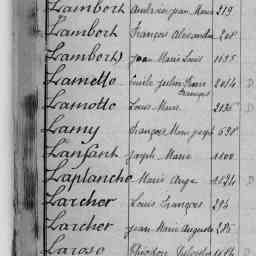 Lambert Ambroise Jean Marie 219
Lambert François Alexandre 208
Lambert Jean Marie Louis 1695
Lamette Emile Julien Pierre François 2014 D
Lamotte Louis Marie 2136 D
Lamy François Marie Joseph 698
Lanfant Joseph Marie 1100
Laplanche Marie Ange 1124 D
Larcher Louis François 204
Larcher Jean Marie Auguste 285
Laroso Théodore